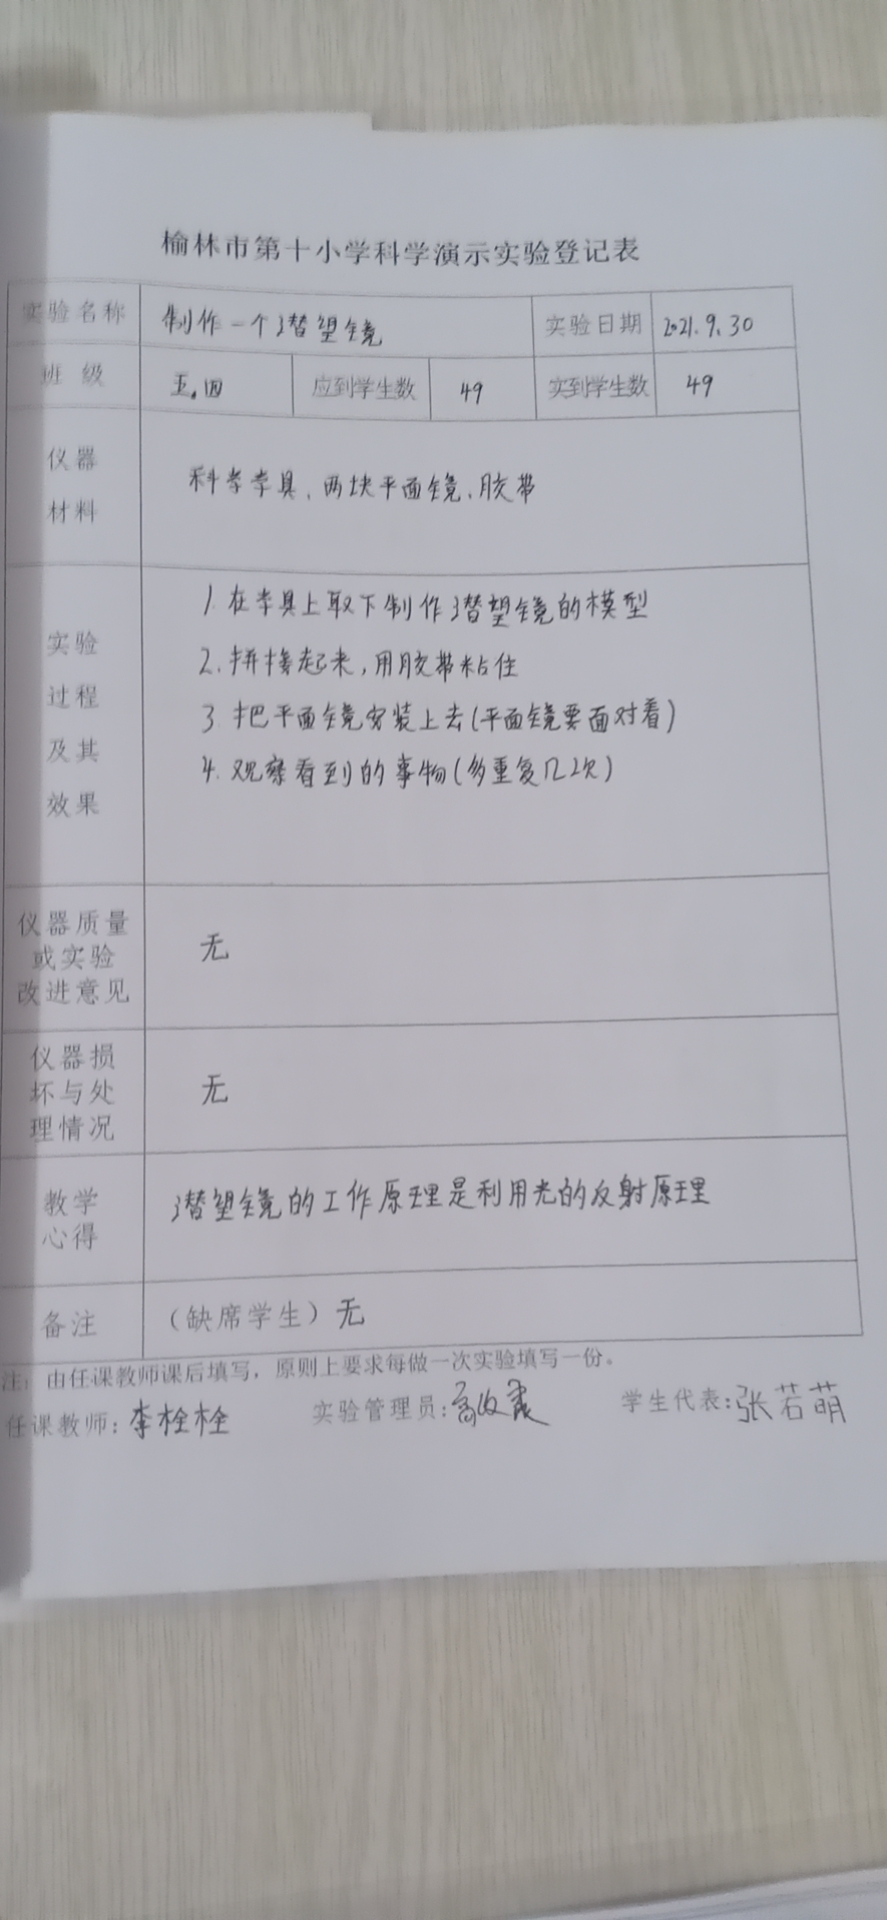 榆林市第十小学科学演示实验登记表
实验名称 制作一个潜望镜 实验日期 2021.9.30
班 级 五.四 应到学生数 49 实到学生数 49
仪器
材料
科学学具、两块平面镜、胶带
实验
过程
及其
效果
1. 在学具上取下制作潜望镜的模型
2. 拼接起来,用胶带粘住
3. 把平面镜安装上去(平面镜要面对看)
4. 观察看到的事物(多重复几次)
仪器质量
或实验
改进意见
无
仪器损
坏与处
理情况
无
教学
心得
潜望镜的工作原理是利用光的反射原理
备注 (缺席学生)无
注:由任课教师课后填写,原则上要求每做一次实验填写一份。
任课教师:李栓栓 实验管理员: 学生代表:张若萌